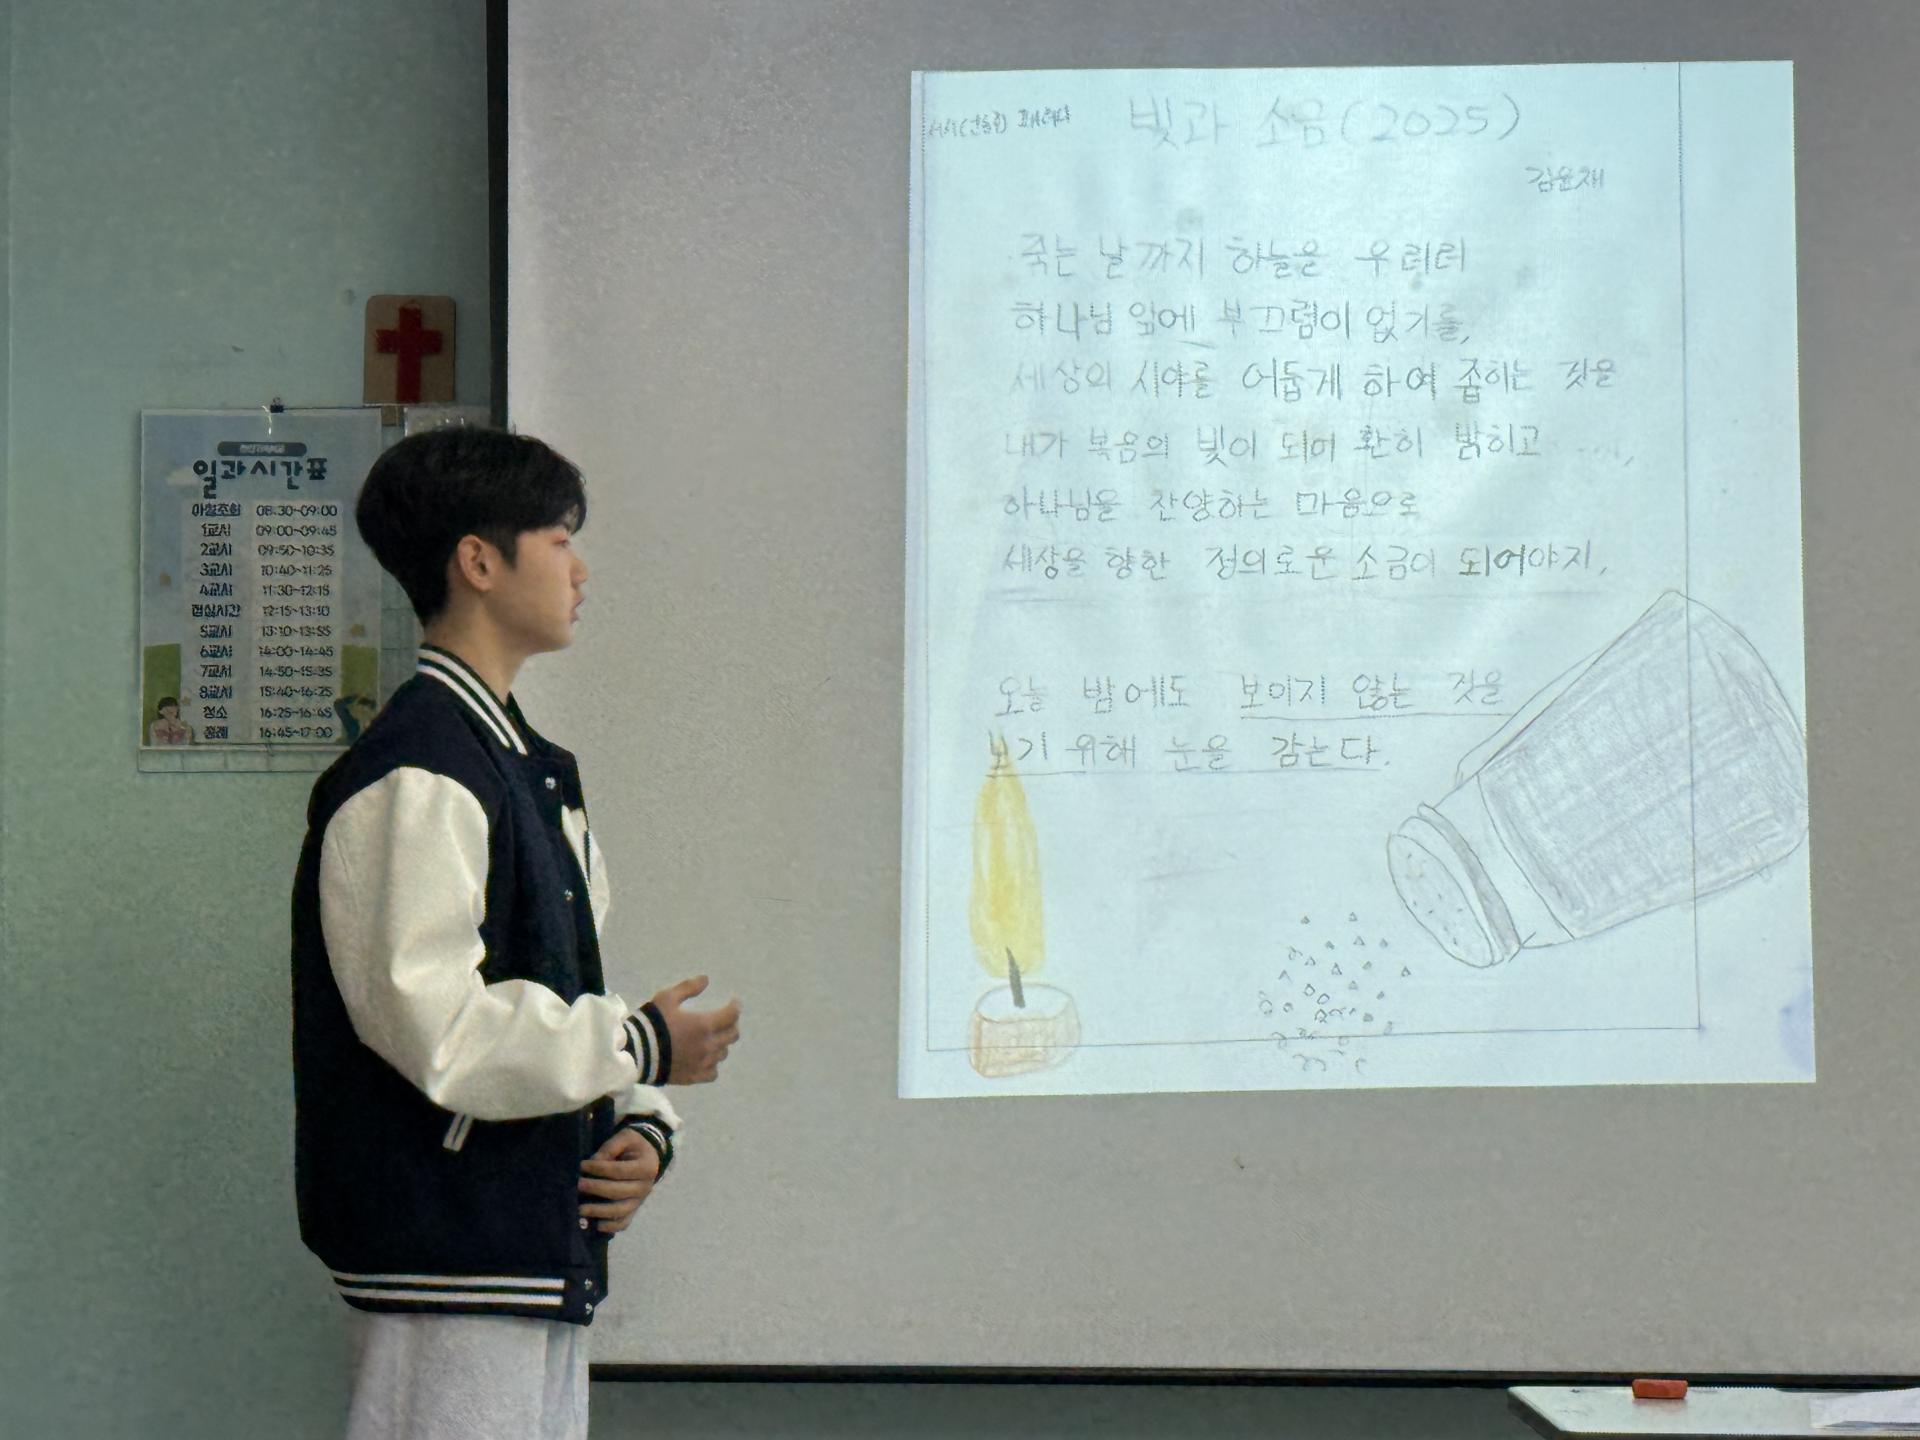 일과시간표
아침조회 08:30~09:00
1교시 09:00~09:45
2교시 09:50~10:35
3교시 10:40~11:25
4교시 11:30~12:15
점심시간 12:15~13:10
5교시 13:10~13:55
6교시 14:00~14:45
7교시 14:50~15:35
8교시 15:40~16:25
청소 16:25~16:45
종례 16:45~17:00
서시(윤동주) 패러디
빛과 소금(2025)
김윤재
죽는 날까지 하늘을 우러러
하나님 앞에 부끄럼이 없기를,
세상의 시야를 어둡게 하여 좁히는 것을
내가 복음의 빛이 되어 환히 밝히고 ....,
하나님을 찬양하는 마음으로
세상을 향한 정의로운 소금이 되어야지,
오늘 밤에도 보이지 않는 것을
보기 위해 눈을 감는다.